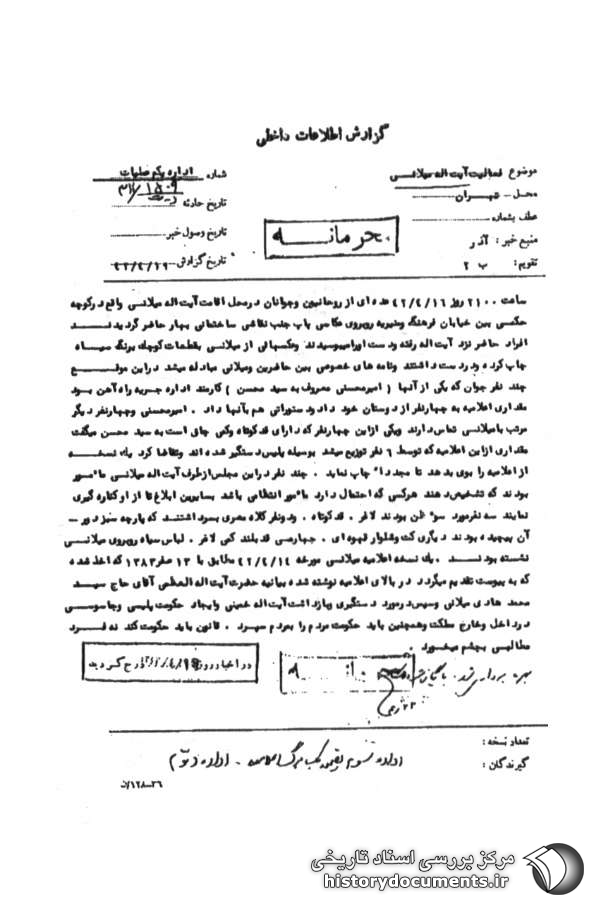 گزارش اطلاعات داخلی
موضوع فعالیت آیت اله میلانی
محل - تهران
عطف بشماره
منبع خبر: آذر
تقویم: ب ۲
شماره اداره یکم عملیات
تاریخ حادثه
تاریخ وصول خبر
تاریخ گزارش
محرمانه
ساعت ۲۱۰۰ روز ۴۲/۴/۱۶ عده ای از روحانیون وجوانان درمحل اقامت آیت اله میلانی واقع درکوچه
حکمی بین خیابان فرهنگ ومنیریه روبروی عکاسی پاپ جنب نقاشی ساختمانی بهار حاضر گردیدند
افراد حاضر نزد آیت اله رفته ودست اورامیبوسیدند وعکسهائی از میلانی بقطعات کوچك برنگ سیاه
چاپ کرده ودردست داشتند ونامه های خصوصی بین حاضرین ومیلانی مبادله میشد دراین موقع
چند نفر جوان که یکی از آنها ( امیرمحسنی معروف به سید محسن ) کارمند اداره جریه راه آهن بود
مقداری اعلامیه به چهارنفر از دوستان خود داد ودستوراتی هم بآنها داد . امیرمحسنی وچهارنفر دیگر
مرتب بامیلانی تماس دارند ویکی ازاین چهارنفر که دارای قد کوتاه وکمی چاق است به سید محسن میگفت
مقداری ازاین اعلامیه که توسط ۶ نفر توزیع میشد بوسیله پلیس دستگیر شده اند وتقاضا کرد یك نسخه
از اعلامیه را بوی بدهد تا مجددا" چاپ نماید . چند نفر دراین مجلس ازطرف آیت اله میلانی مامور
بودند که تشخیص دهند هرکسی که احتمال دارد مامور انتظامی باشد بسایرین ابلاغ تا از او کناره گیری
نمایند سه نفرمورد سوء ظن بودند لاغر . قد کوتاه . ودونفر کلاه مصری بسرداشتند که پارچه سبز دور -
آن پیچیده بودند دیگری کت وشلوار قهوه ای . چهارمی قد بلند کمی لاغر . لباس سیاه روبروی میلانی
نشسته بودند . یك نسخه اعلامیه میلانی مورخه ۴۲/۴/۱۴ مطابق با ۱۳ صفر ۱۳۸۳ که اخذ شده
که به پیوست تقدیم میگردد در بالای اعلامیه نوشته شده بیانیه حضرت آیت اله العظمی آقای حاج سید
محمد هادی میلانی وسپس درمورد دستگیری وبازداشت آیت اله خمینی وایجاد حکومت پلیسی وجاسوسی
درداخل وخارج مملکت وهمچنین باید حکومت مردم را بمردم سپرد . قانون باید حکومت کند نه فرد
مطالبی بچشم میخورد .
در اخبار روز درج گردید
تعداد نسخه :
گیرندگان :
اداره سوم
۱۲۸-۳۶
مرکز بررسی اسناد تاریخی
historydocuments.ir